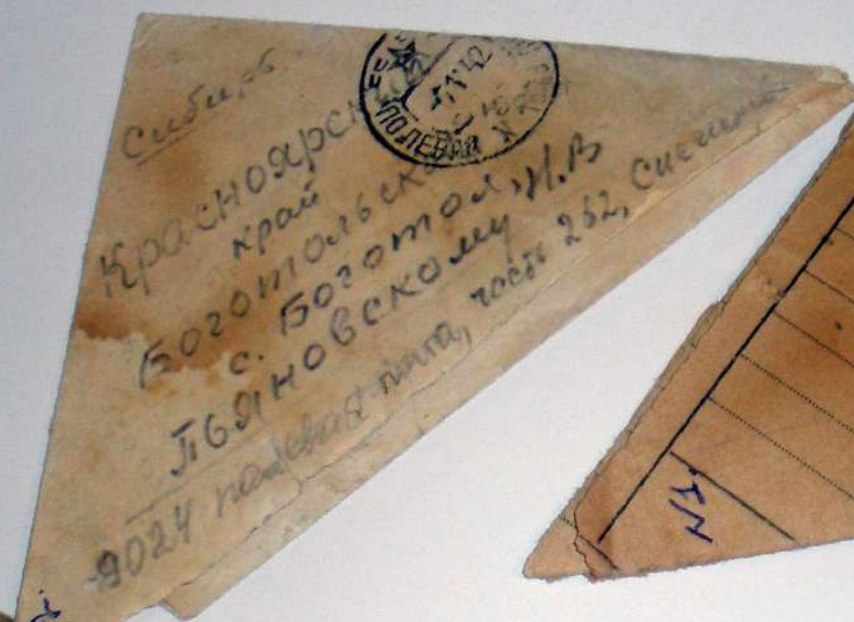 Сибирь
Красноярский
край
Боготольский
с. Боготол,
Пьяновскому И.В
9024 полевая почта, часть 262,
ПОЛЕВАЯ